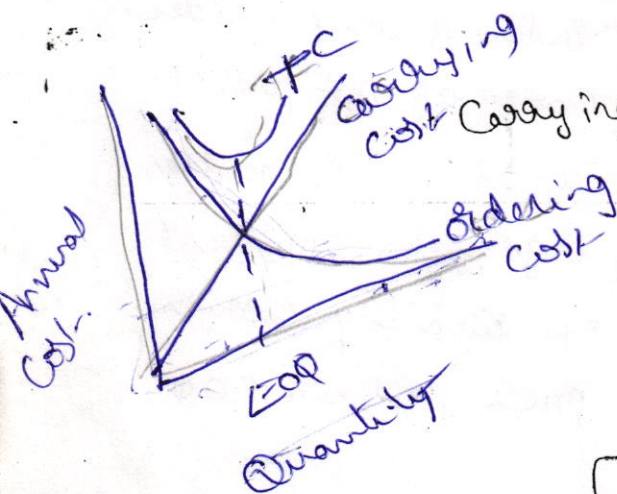 TC
carrying
cost Carryin
ordering
cost
Annual
Cost
EOQ
Quantity